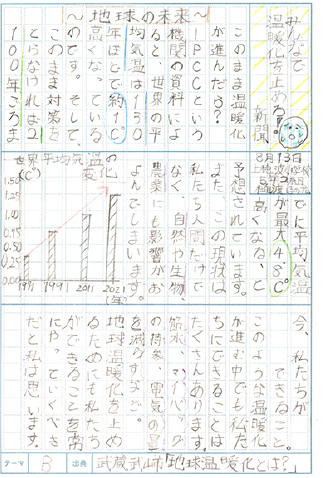 みんなで
温暖化を止める!!
新聞
~地球の未来~
このまま温暖化
が進んだら?
IPCCという
機関の資料によ
ると、世界の平
均気温は130
年ほどで約1℃
高くなっている
のです。そして、
このまま対策を
とらなければ2
100年ごろま
8月13日
でに平均気温
が最大4.8℃
も高くなると
予想されています。
また、この現状は
私たち人間だけで
なく、自然や生物、
農業にも影響がお
よんでしまいます。
世界平均気温の
変化
(℃)
1.50
1.25
1.00
0.50
0.25
0.00
2011
2021
(年)
今、私たちが
できること。
このような温暖化
が進む中でも私た
ちにできることは
たくさんあります。
節水、マイバッグ
の持参、電気の量
を減らすなど。
地球温暖化を止め
るためにも私たち
ができることを常
にやっていくべき
だと私は思います。
テーマ B 出典 「地球温暖化とは?」